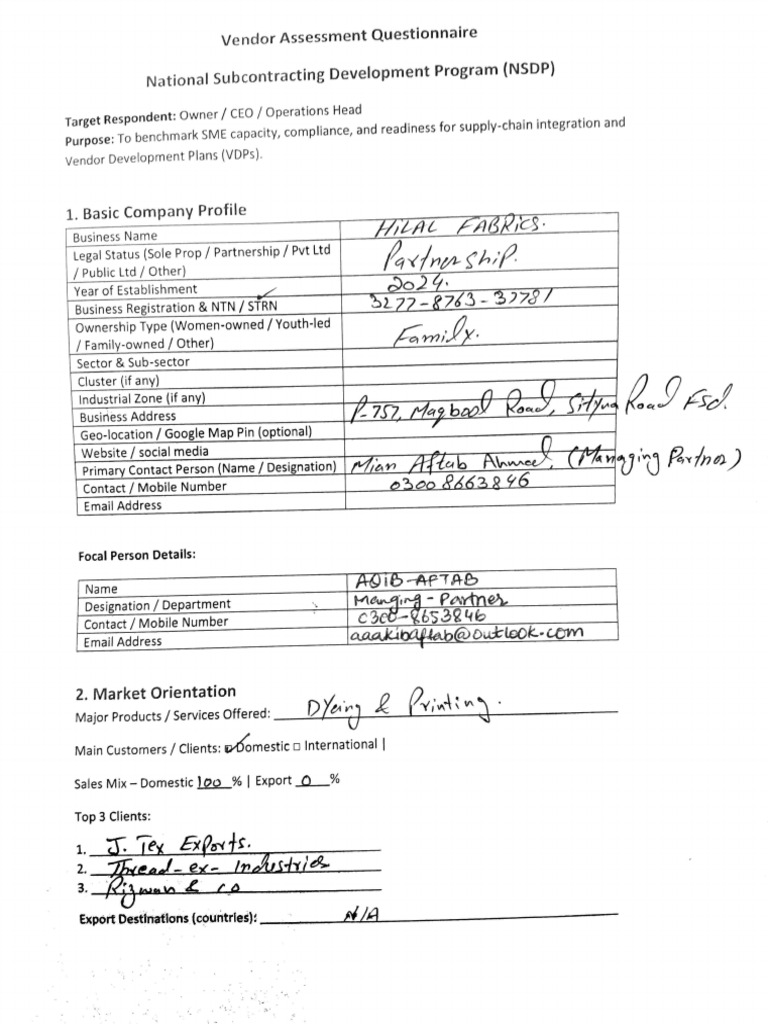 Vendor Assessment Questionnaire
National Subcontracting Development Program (NSDP)
Target Respondent: Owner / CEO / Operations Head
Purpose: To benchmark SME capacity, compliance, and readiness for supply-chain integration and
Vendor Development Plans (VDPs).
1. Basic Company Profile
Business Name HILAL FABRICS.
Legal Status (Sole Prop / Partnership / Pvt Ltd
/ Public Ltd / Other) Partnership.
Year of Establishment 2024.
Business Registration & NTN / STRN ✓ 3277-8763-32781
Ownership Type (Women-owned / Youth-led
/ Family-owned / Other) Family.
Sector & Sub-sector
Cluster (if any)
Industrial Zone (if any)
Business Address P-757, Maqbool Road, Sityna Road Fsd.
Geo-location / Google Map Pin (optional)
Website / social media
Primary Contact Person (Name / Designation) Mian Aftab Ahmed, (Managing Partner)
Contact / Mobile Number 0300 8663846
Email Address
Focal Person Details:
Name AQIB-AFTAB
Designation / Department Manging - Partner
Contact / Mobile Number 0300-8653846
Email Address aaakibaftab@outlook.com
2. Market Orientation
Major Products / Services Offered: Dyeing & Printing.
Main Customers / Clients: ☑ Domestic □ International |
Sales Mix – Domestic 100 % | Export 0 %
Top 3 Clients:
1. J. Tex Exports.
2. Thread-ex-Industries
3. Rizwan & co
Export Destinations (countries): N/A